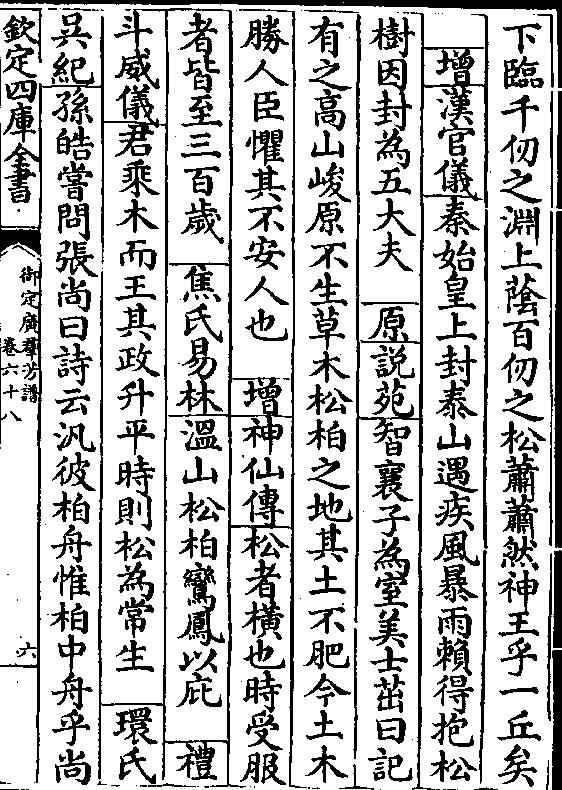 下臨千仞之淵上蔭百仞之松蕭蕭然神王乎一丘矣
增漢官儀秦始皇上封泰山遇疾風暴雨賴得抱松
樹因封為五大夫 原說苑智襄子為室美士茁曰記
有之高山峻原不生草木松柏之地其土不肥今土木
勝人臣懼其不安人也 增神仙傳松者橫也時受服
者皆至三百歲 焦氏易林溫山松柏鸞鳳以庇 禮
斗威儀君乘木而王其政升平時則松為常生 環氏
吳紀孫皓嘗問張尚曰詩云汎彼柏舟惟柏中舟乎尚
欽定四庫全書
御定廣羣芳譜
卷六十八
六